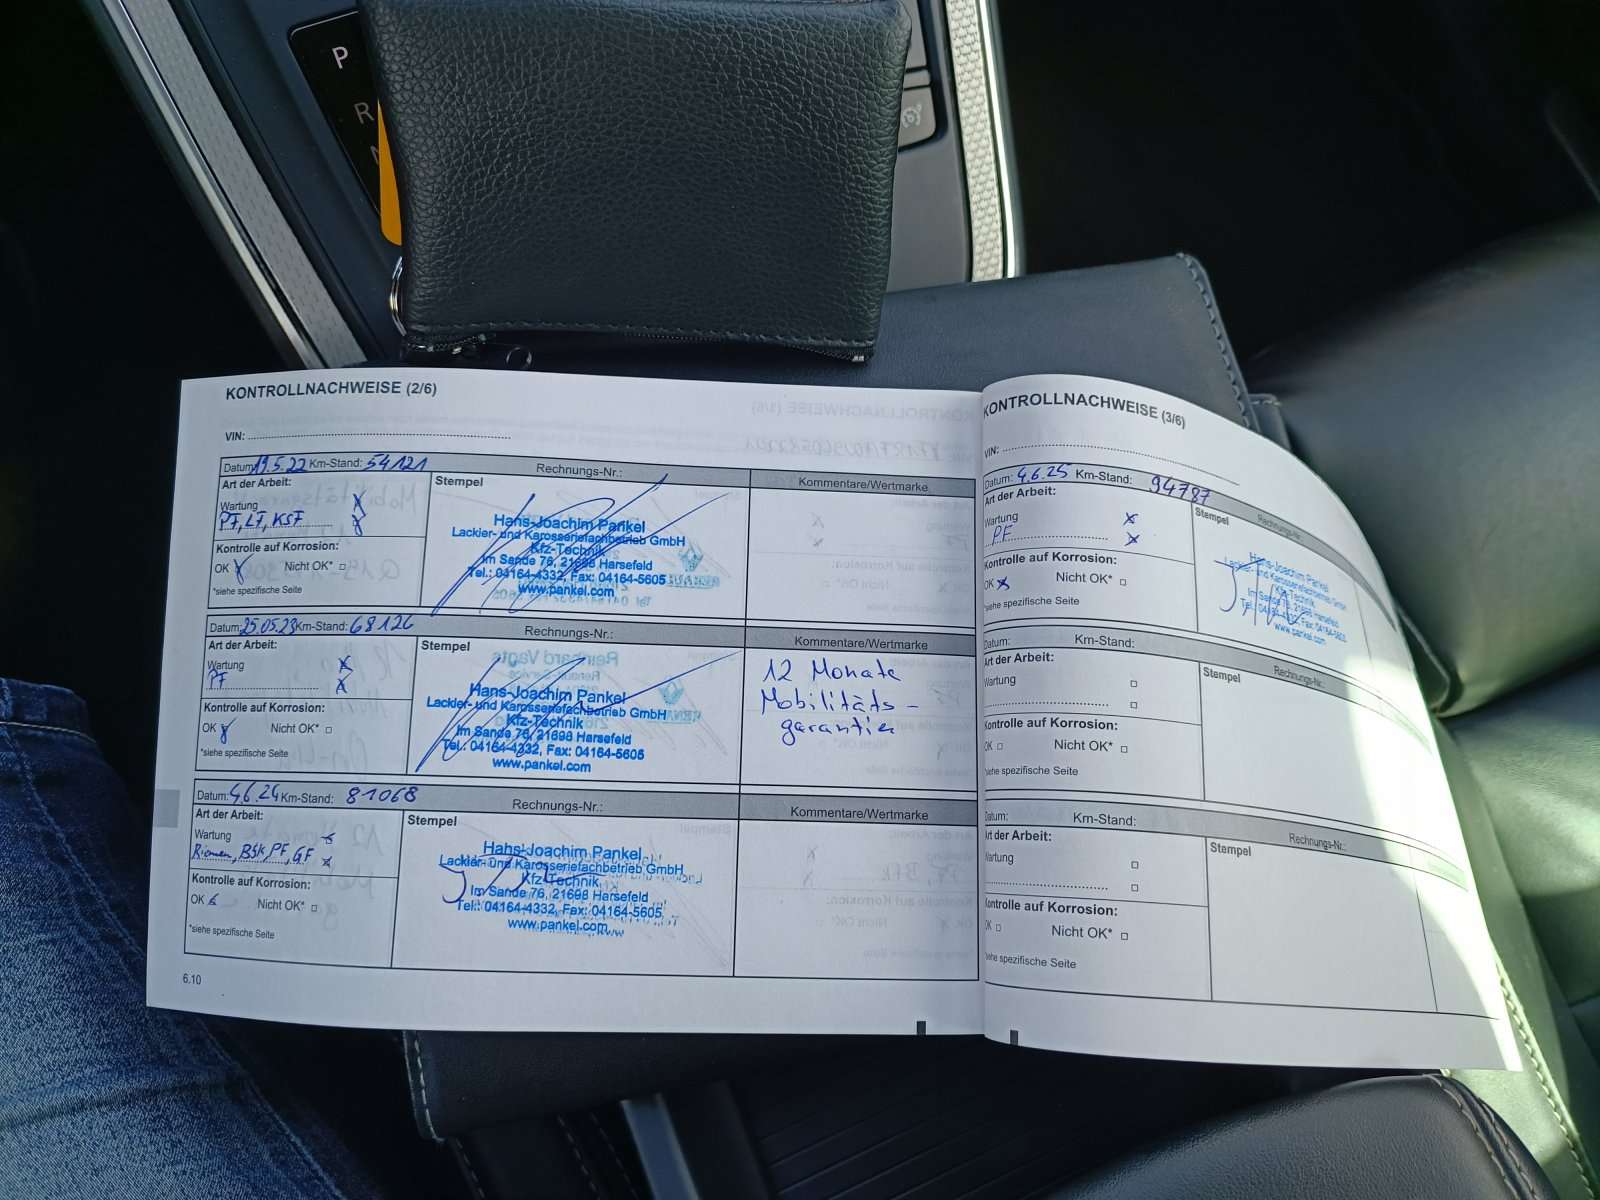 P
R
N
KONTROLLNACHWEISE (2/6)
VIN:
Datum: 19.5.22 Km-Stand: 54121
Rechnungs-Nr.:
Kommentare/Wertmarke
Art der Arbeit:
Stempel
Wartung
PF, LF, KSF
Kontrolle auf Korrosion:
OK Nicht OK*
*siehe spezifische Seite
Hans-Joachim Pankel
Lackier- und Karosseriefachbetrieb GmbH
Kfz-Technik
Im Sande 76, 21698 Harsefeld
Tel.: 04164-4332, Fax: 04164-5605
www.pankel.com
Datum: 25.05.23 Km-Stand: 68126
Rechnungs-Nr.:
Kommentare/Wertmarke
Art der Arbeit:
Stempel
Wartung
PF
Kontrolle auf Korrosion:
OK Nicht OK*
*siehe spezifische Seite
Hans-Joachim Pankel
Lackier- und Karosseriefachbetrieb GmbH
Kfz-Technik
Im Sande 76, 21698 Harsefeld
Tel.: 04164-4332, Fax: 04164-5605
www.pankel.com
12 Monate
Mobilitäts-
garantie
Datum: 4.6.24 Km-Stand: 81068
Rechnungs-Nr.:
Kommentare/Wertmarke
Art der Arbeit:
Stempel
Wartung
Riemen, BSK, PF, GF
Kontrolle auf Korrosion:
OK Nicht OK*
*siehe spezifische Seite
Hans-Joachim Pankel
Lackier- und Karosseriefachbetrieb GmbH
Kfz-Technik
Im Sande 76, 21698 Harsefeld
Tel.: 04164-4332, Fax: 04164-5605
www.pankel.com
6.10
KONTROLLNACHWEISE (3/6)
VIN:
Datum: 4.6.25 Km-Stand: 94787
Rechnungs-Nr.:
Art der Arbeit:
Stempel
Wartung
PF
Kontrolle auf Korrosion:
OK Nicht OK*
*siehe spezifische Seite
Hans-Joachim Pankel
Lackier- und Karosseriefachbetrieb GmbH
Kfz-Technik
Im Sande 76, 21698 Harsefeld
Tel.: 04164-4332, Fax: 04164-5605
www.pankel.com
Datum: Km-Stand:
Rechnungs-Nr.:
Art der Arbeit:
Stempel
Wartung
Kontrolle auf Korrosion:
OK Nicht OK*
*siehe spezifische Seite
Datum: Km-Stand:
Rechnungs-Nr.:
Art der Arbeit:
Stempel
Wartung
Kontrolle auf Korrosion:
OK Nicht OK*
*siehe spezifische Seite